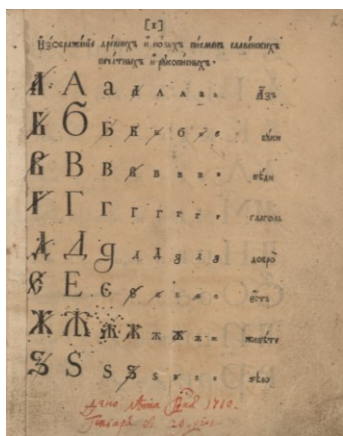 [1]
Изображенїе древнихъ и новыхъ писменъ славенскихъ
печатныхъ и рукописныхъ.
А А а а а а а а азъ
Б Б Б б б б б буки
В В В в в в в в вѣди
Г Г Г г г г г глаголь
Д Д д д д д д д добро
Є Е є е е е е есть
Ж Ж ж ж ж ж ж живѣте
Ѕ Ѕ ѕ ѕ ѕ ѕ ѕ ѕ ѕѣло
Дано лѣта 1710.
Генваря въ 29 день